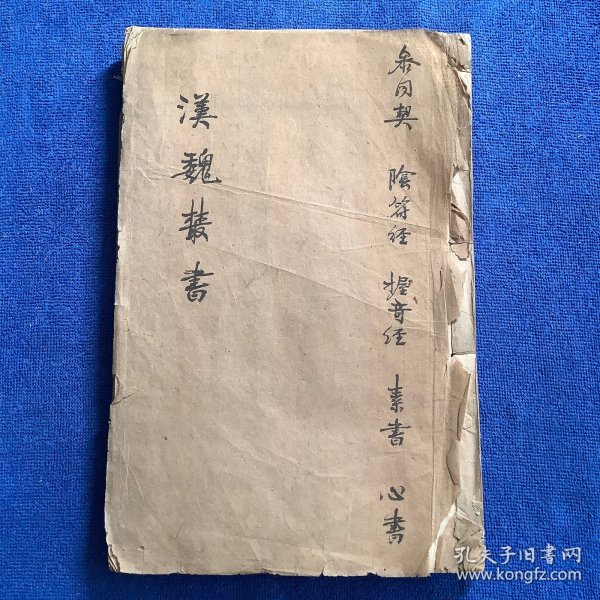 参同契 陰符经 握奇经 素書 心書
漢魏叢書
孔夫子旧書网
www.kongfz.com